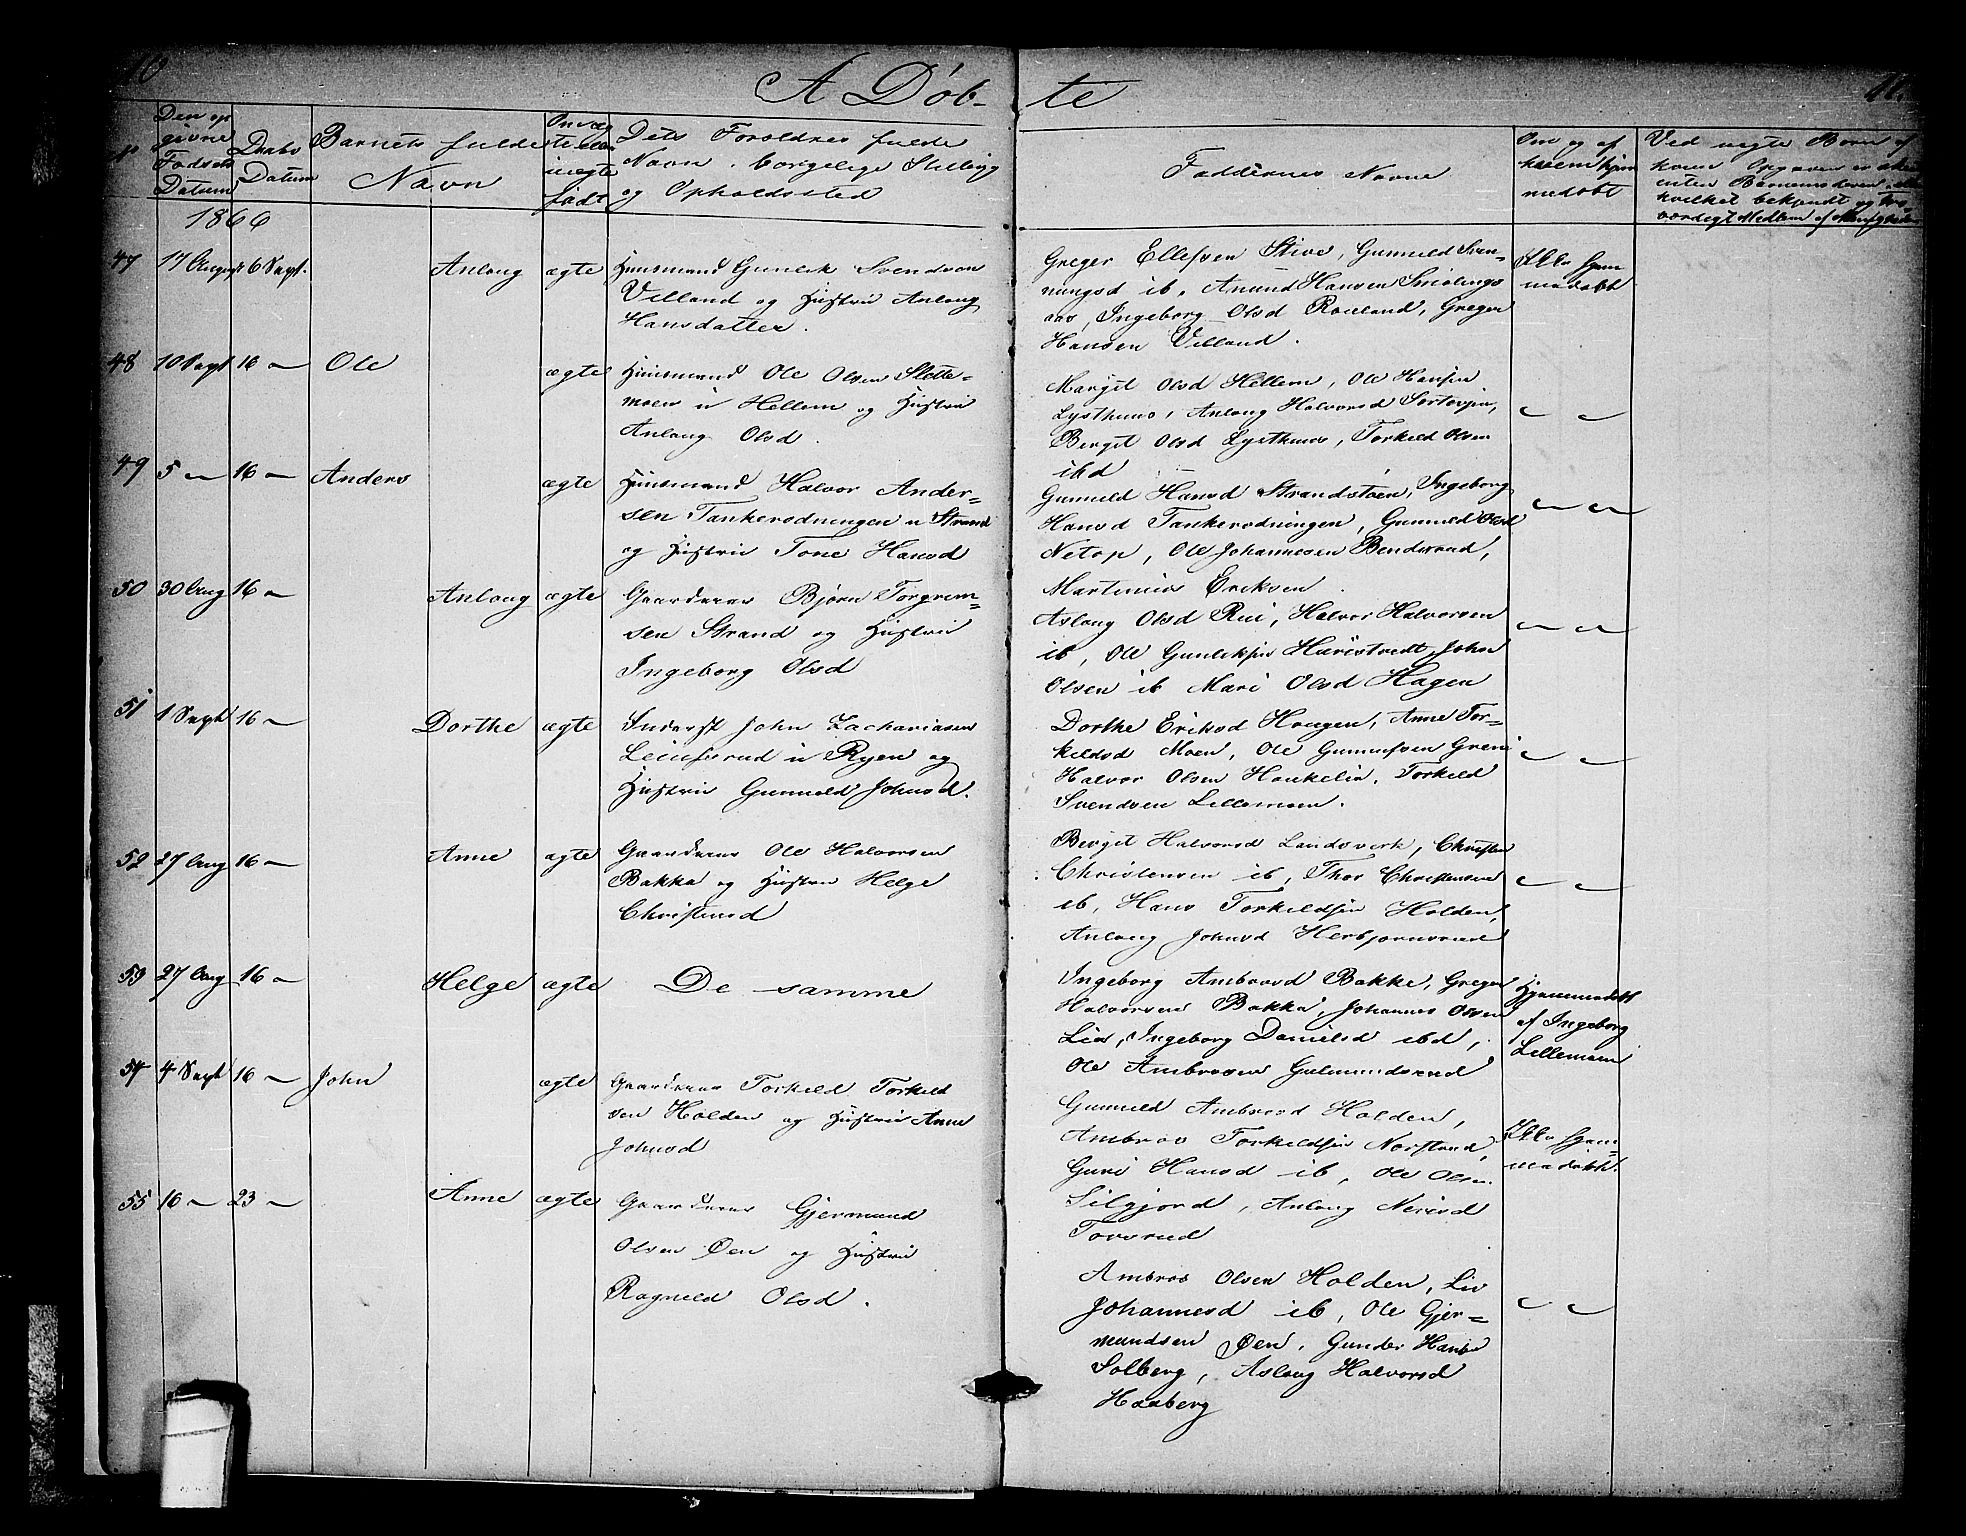 10
A Døb-
te
11.
No
Den op
givne
Fødsels
Datum
Daabs
Datum
Barnets fulde
Navn
Om æg
te eller
uægte
født
Dets Forældres fulde
Navn, borgelige Stilling
og Opholdssted
Faddernes Navne
Om og af
hvem hjem
medøbt
Ved uægte Børn af
hvem Opgaven er
enten
hvilket bekjendt og tro-
værdigt Medlem af Menigheden
1866
47 17 August 6 Sept. Anlaug ægte Huusmand Gunlek Svendsen
Villand og Hustru Anlaug
Hansdatter.
Greger Ellefsen Stive, Gunnild Sven-
nungsd ib, Anund Hansen Smelings
aas, Ingeborg Olsd Roeland, Greger
Hansen Villand.
Ikke hjem
medøbt
48 10 Sept 16 — Ole ægte Huusmand Ole Olsen Slette-
moen u Hellem og Hustru
Anlaug Olsd.
Margit Olsd Hellem, Ole Hansen
Lysthuus, Anlaug Halvorsd
Bergit Olsd Lysthuus, Torkild Olsen
ibd
49 5 — 16 — Anders ægte Huusmand Halvor Ander-
sen Tankerodningen u Strand
og Hustru Tone Hansd
Gunnild Hansd Strandstøen, Ingeborg
Hansd Tankerodningen, Gunnild Olsd
Netop, Ole Johannesen Bendsrud,
Martinius Eriksen.
50 30 Aug 16 — Anlaug ægte Gaardener Bjørn Torgrem-
sen Strand og Hustru
Ingeborg Olsd
Aslaug Olsd Rui, Halvor Halvorsen
ib, Ole Gunleksen Haristvedt, John
Olsen ib Mari Olsd Hagen
51 1 Sept 16 — Dorthe ægte Inderst John Zachariasen
Leiefsrud u Ryen og
Hustru Gunnild Johnsd.
Dorthe Eriksd Haugen, Anne Tor-
kildsd Moen, Ole Gunnufsen Greni
Halvor Olsen Haukelia, Torkild
Svendsen Lillemoen.
52 27 Aug 16 — Anne ægte Gaardener Ole Halvorsen
Bakka og Hustru Helge
Christensd
Bergit Halvorsd Landsverk, Christen
Christensen ib, Thor Christensen
ib, Hans Torkildsen Holden,
Anlaug Johnsd Herbjørnsrud
53 27 Aug 16 — Helge ægte De samme
Ingeborg Ambrosd Bakke, Greger
Halvorsen Bakka, Johannes Olsen
Lia, Ingeborg Danielsd ibd,
Ole Ambrosen Gulmundsrud
Hjemmedøbt
af Ingeborg
Lillemoen
54 4 Sept 16 — John ægte Gaardener Torkild Torkild
sen Holden og Hustru Anne
Johnsd
Gunnild Ambrosd Holden,
Ambros Torkildsen Norstrud,
Guri Hansd ib, Ole Olsen
Silgjord, Anlaug Neirid
Torsrud
Ikke hjem-
medøbt.
55 16 — 23 — Anne ægte Gaardener Gjermund
Olsen Øen og Hustru
Ragnild Olsd.
Ambros Olsen Holden, Liv
Johannesd ib, Ole Gjer-
mundsen Øen, Gunder Hansen
Solberg, Aslaug Halvorsd
Haaberg